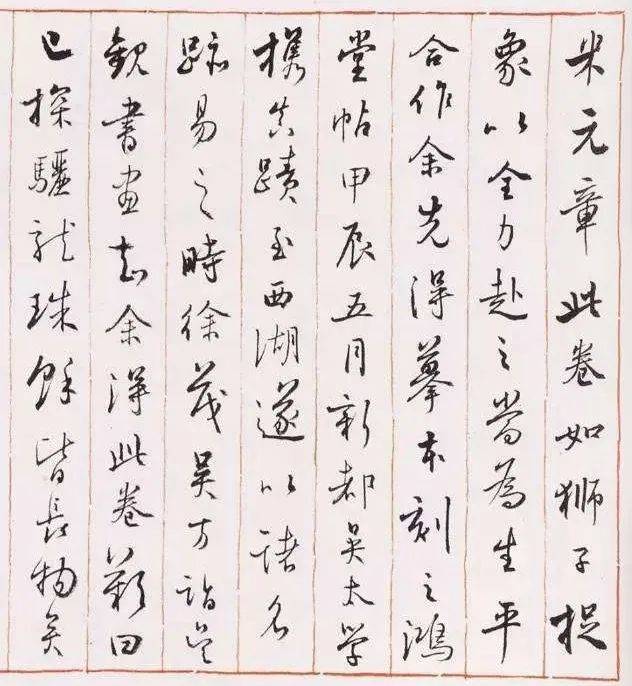 米元章此卷如獅子捉
象以全力赴之當為生平
合作余先得摹本刻之鴻
堂帖甲辰五月新都吳太学
攜真蹟至西湖遂以諸名
跡易之時徐茂吳方詣吳
觀書畫知余得此卷歎曰
已探驪龍珠餘皆長物矣